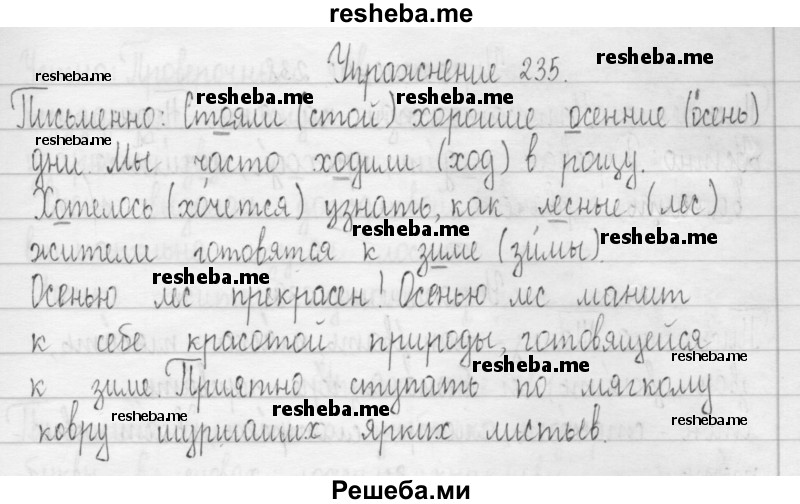 resheba.me
Упражнение 235. resheba.me
resheba.me
resheba.me resheba.me
Письменно: Стояли (стой) хорошие осенние (осень)
дни. Мы часто ходили (ход) в рощу.
Хотелось (хо́чется) узнать, как лесные (лес)
жители готовятся к зиме (зи́мы). resheba.me
resheba.me resheba.me
Осенью лес прекрасен! Осенью лес манит
к себе красотой природы, готовящейся
resheba.me resheba.me
к зиме. Приятно ступать по мягкому
resheba.me resheba.me resheba.me
ковру шуршащих ярких листьев.
Решеба.ми